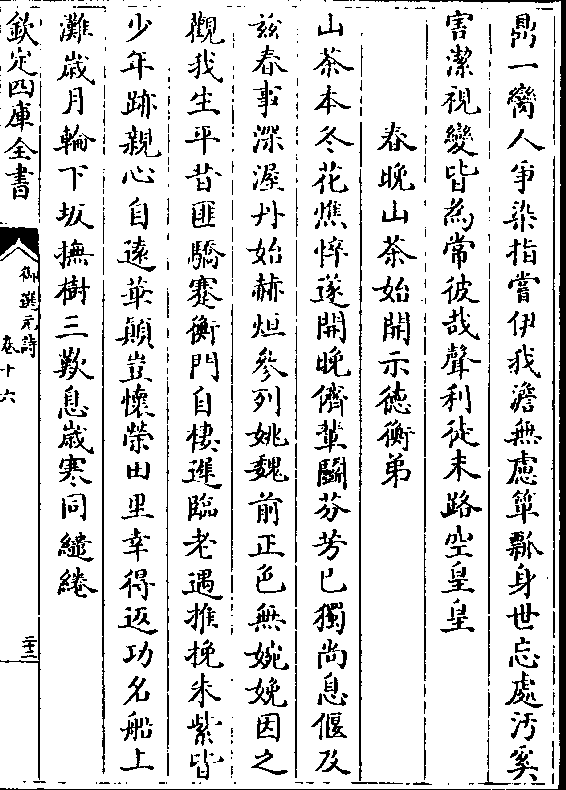 鼎一臠人爭染指嘗伊我澹無慮簞瓢身世忘處汚奚
害潔視變皆為常彼哉聲利徒末路空皇皇
春晚山茶始開示德衡弟
山茶本冬花憔悴遂開晚儕輩鬭芬芳已獨尚息偃及
兹春事深渥丹始赫烜參列姚魏前正色無婉娩因之
觀我生平昔匪驕蹇衡門自棲遲臨老遇推挽朱紫皆
少年跡親心自遠華顛豈懷榮田里幸得返功名船上
灘歲月輪下坂撫樹三歎息歲寒同繾綣
欽定四庫全書
御選元詩
卷十六
二十三